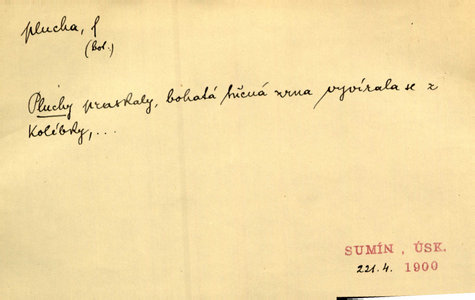 plucha, f
(bot.)
Pluchy praskaly, bohatá tučná zrna vyvírala se z
kolébky,...
SUMÍN, ÚSK.
221.4. 1900